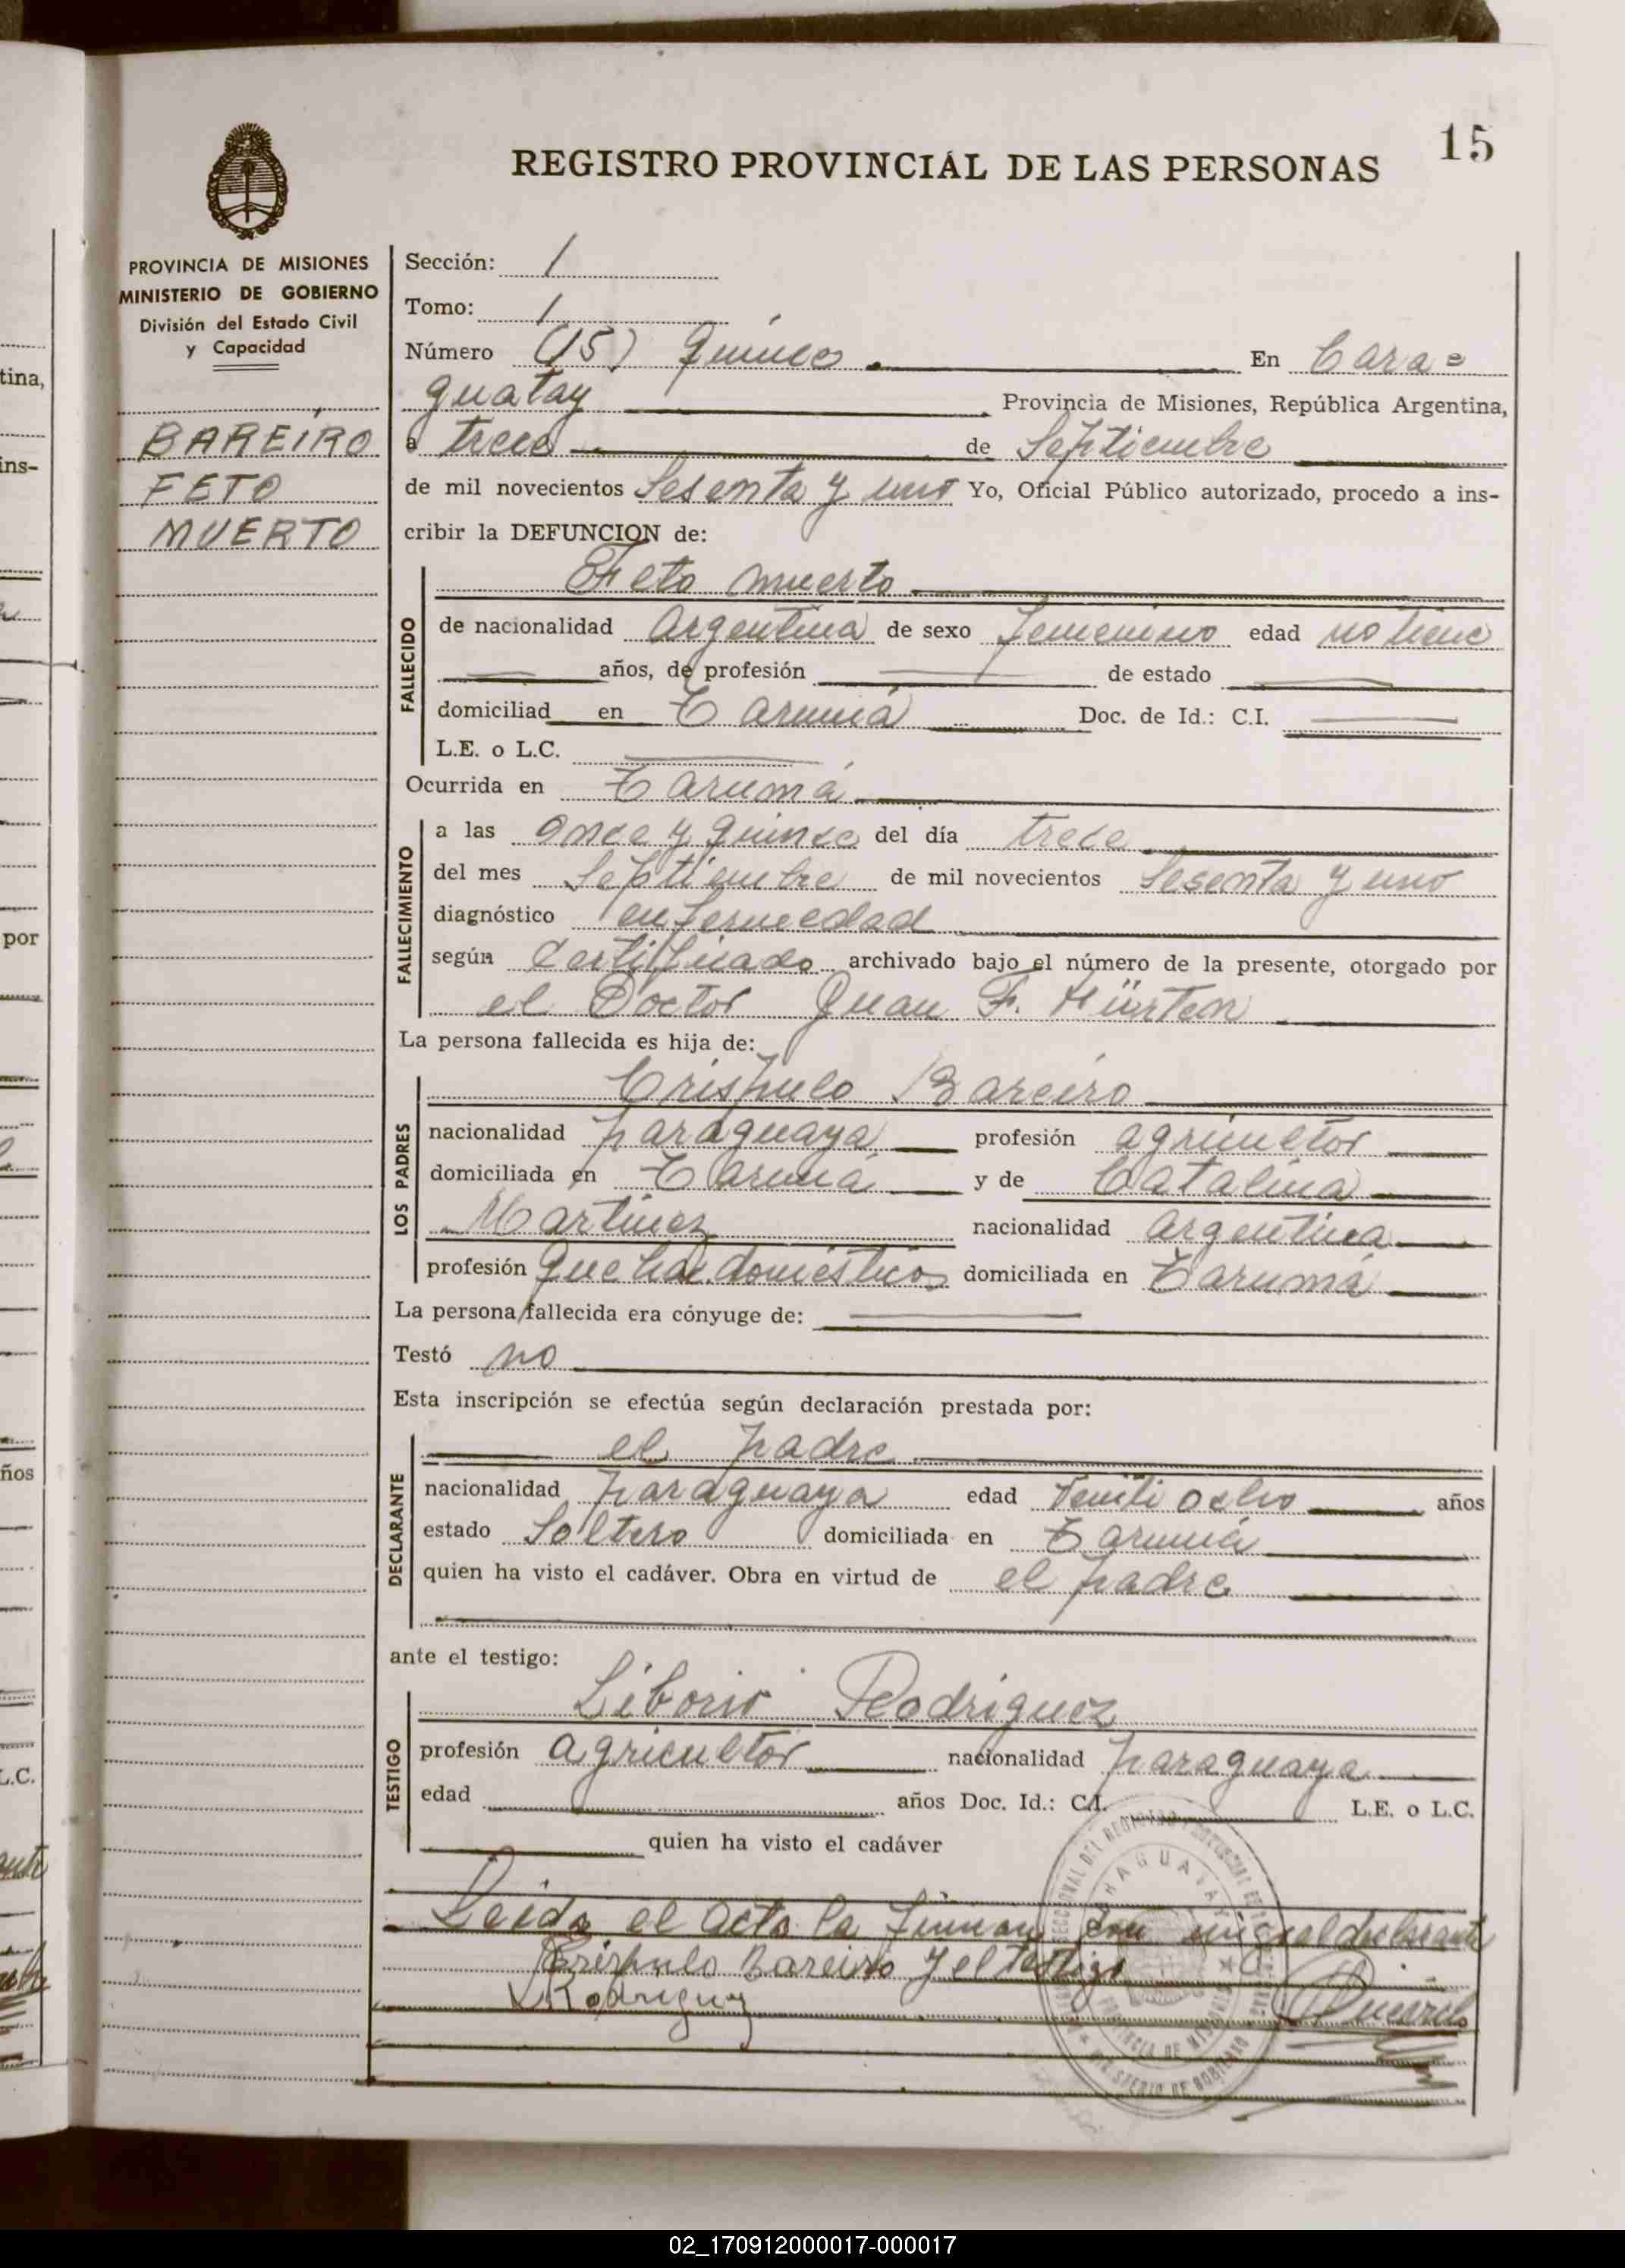 15
REGISTRO PROVINCIAL DE LAS PERSONAS
PROVINCIA DE MISIONES
MINISTERIO DE GOBIERNO
División del Estado Civil
y Capacidad
BAREIRO
FETO
MUERTO
Sección: 1
Tomo: 1
Número (15) Quince En Cara=
guatay Provincia de Misiones, República Argentina,
a trece de Septiembre
de mil novecientos Sesenta y uno Yo, Oficial Público autorizado, procedo a ins-
cribir la DEFUNCION de:
FALLECIDO
Feto muerto
de nacionalidad Argentina de sexo femenino edad no tiene
años, de profesión de estado
domiciliad en Tarumá Doc. de Id.: C.I.
L.E. o L.C.
Ocurrida en Tarumá
FALLECIMIENTO
a las Once y quince del día trece
del mes Septiembre de mil novecientos Sesenta y uno
diagnóstico enfermedad
según Certificado archivado bajo el número de la presente, otorgado por
el Doctor Juan F. Hürten
La persona fallecida es hija de:
LOS PADRES
Crispulo Bareiro
nacionalidad paraguaya profesión agricultor
domiciliada en Tarumá y de Catalina
Martinez nacionalidad argentina
profesión quehac. domésticos domiciliada en Tarumá
La persona fallecida era cónyuge de:
Testó no
Esta inscripción se efectúa según declaración prestada por:
DECLARANTE
el padre
nacionalidad paraguaya edad Veinti ocho años
estado Soltero domiciliada en Tarumá
quien ha visto el cadáver. Obra en virtud de el padre
ante el testigo:
TESTIGO
Liborio Rodriguez
profesión agricultor nacionalidad paraguaya
edad años Doc. Id.: C.I. L.E. o L.C.
quien ha visto el cadáver
Leida el acta la firman el declarante
Crispulo Bareiro y el testigo
L Rodriguez